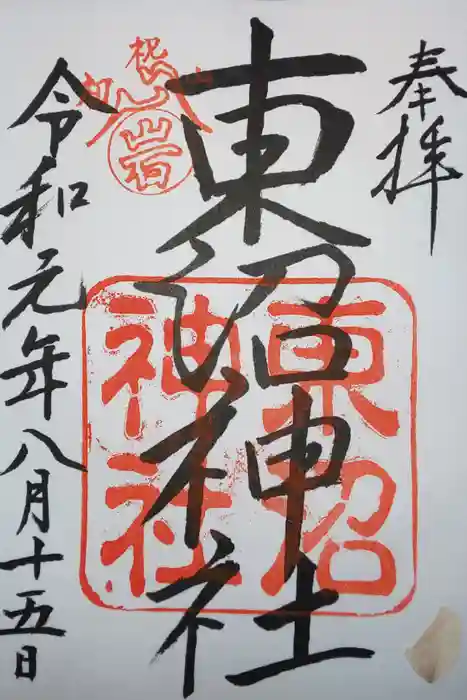 奉拝
東沼神社
東沼
神社
令和元年八月十五日